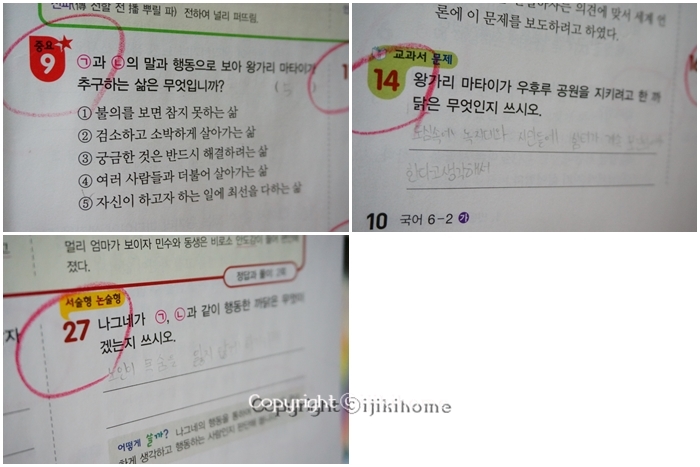 전파(傳 전할 전 播 뿌릴 파) 전하여 널리 퍼뜨림.
중요
9 ㉠과 ㉡의 말과 행동으로 보아 왕가리 마타이가
추구하는 삶은 무엇입니까? ( )
① 불의를 보면 참지 못하는 삶
② 검소하고 소박하게 살아가는 삶
③ 궁금한 것은 반드시 해결하려는 삶
④ 여러 사람들과 더불어 살아가는 삶
⑤ 자신이 하고자 하는 일에 최선을 다하는 삶
의견에 맞서 세계 언
론에 이 문제를 보도하려고 하였다.
교과서 문제
14 왕가리 마타이가 우후루 공원을 지키려고 한 까
닭은 무엇인지 쓰시오.
한다고 생각해서
10 국어 6-2 가
멀리 엄마가 보이자 민수와 동생은 비로소 안도감이
졌다.
정답과 풀이 2쪽
서술형 논술형
27 나그네가 ㉠, ㉡과 같이 행동한 까닭은 무엇이
겠는지 쓰시오.
어떻게 쓸까? 나그네의 행동을 통하여
하게 생각하고 행동하는 사람인지
Copyright © ijikihome